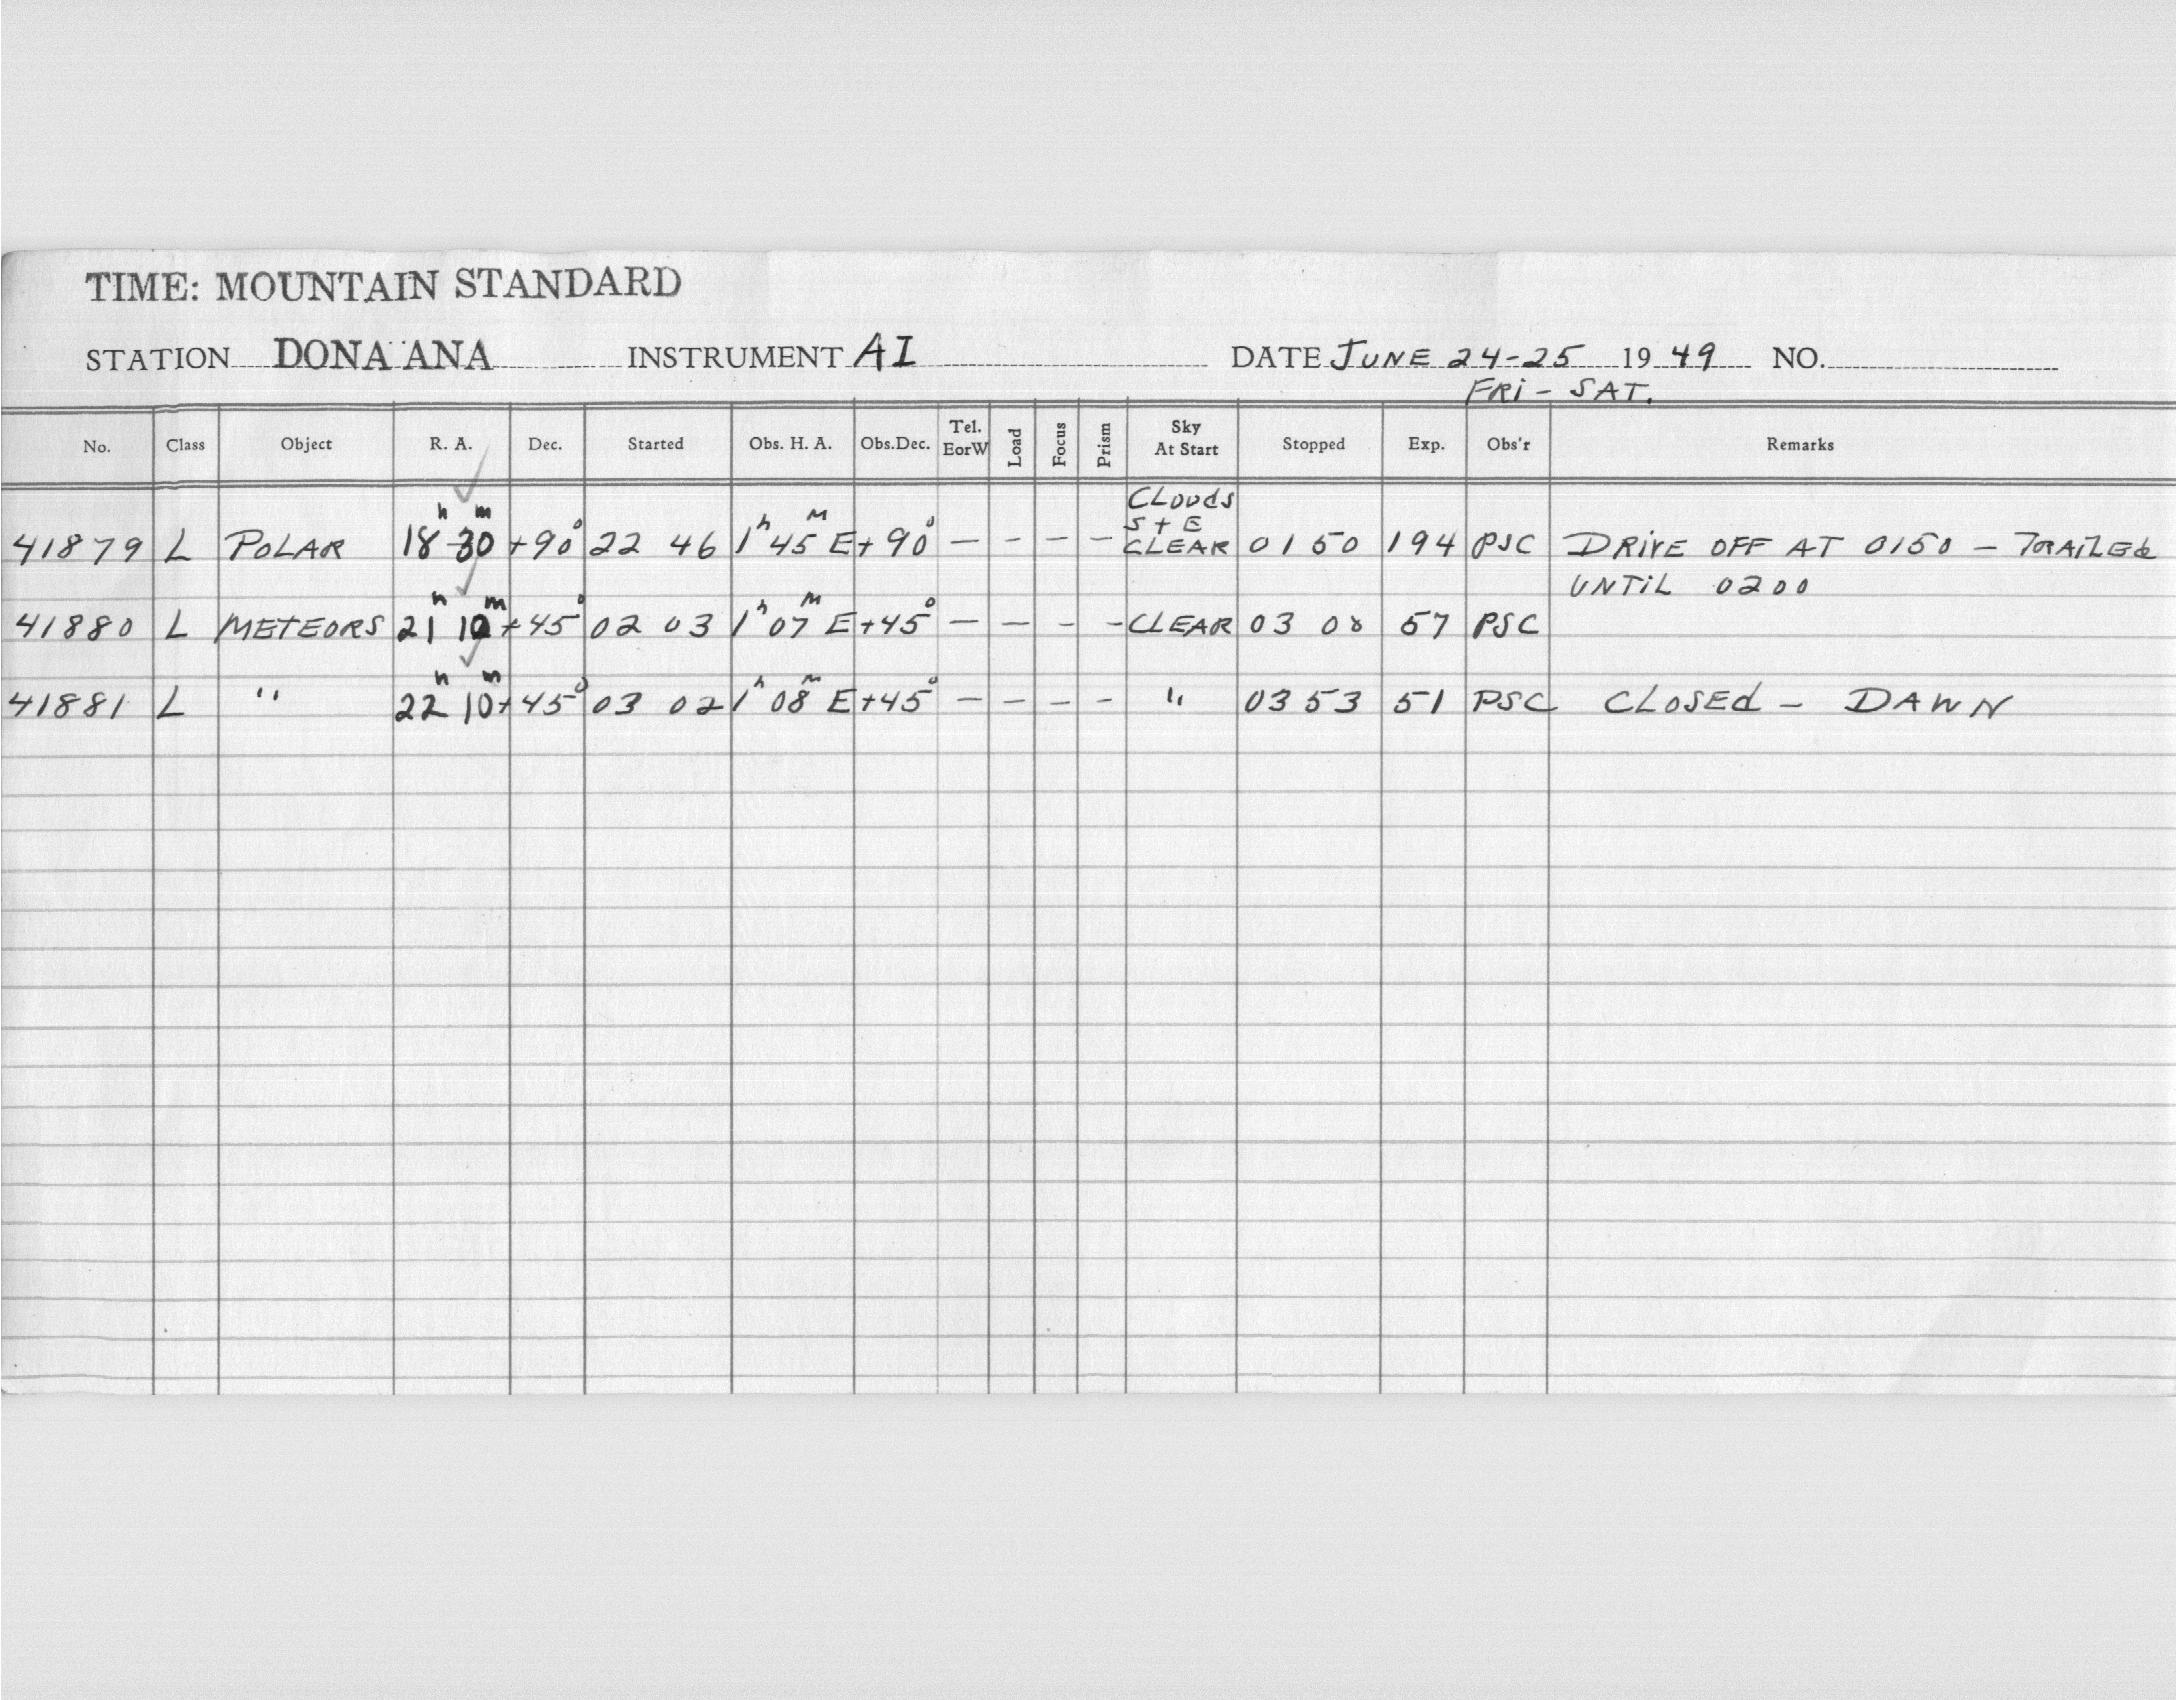 TIME: MOUNTAIN STANDARD
STATION DONA ANA INSTRUMENT AI DATE JUNE 24-25 1949 NO.
FRI - SAT.
No. Class Object R. A. Dec. Started Obs. H. A. Obs.Dec. Tel. EorW Load Focus Prism Sky At Start Stopped Exp. Obs'r Remarks
CLOUDS
S + E
41879 L POLAR 18h 30m +90° 22 46 1h 45m E +90° — — — — CLEAR 01 50 194 PSC DRIVE OFF AT 0150 — TRAILED
UNTIL 0200
41880 L METEORS 21h 10m +45° 02 03 1h 07m E +45° — — — — CLEAR 03 00 57 PSC
41881 L " 22h 10m +45° 03 02 1h 08m E +45° — — — — " 03 53 51 PSC CLOSED — DAWN